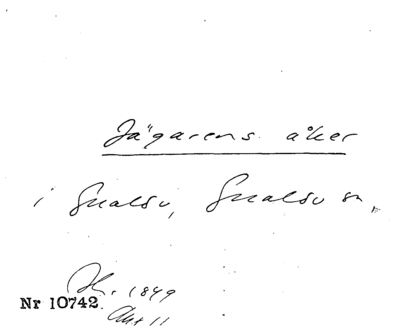 Jägarens åker
i Gualöv, Gualöv sn.
Hr. 1849
Nr 10742.
Akt 11